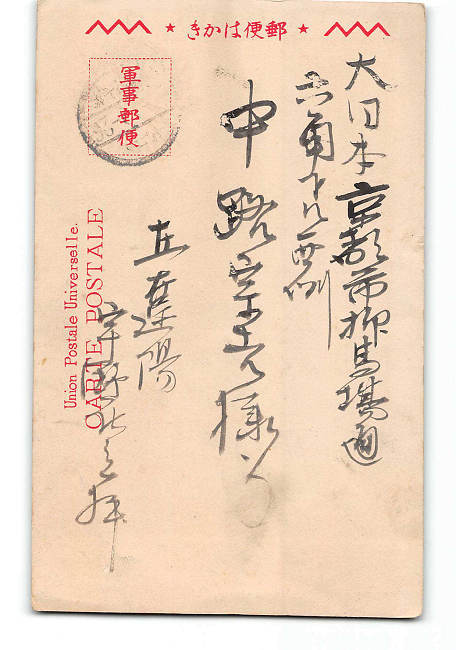 郵便はかき
軍事郵便
Union Postale Universelle.
CARTE POSTALE
大日本京都市柳馬場通
六角下ル西側
中路
様
在遼陽
拝